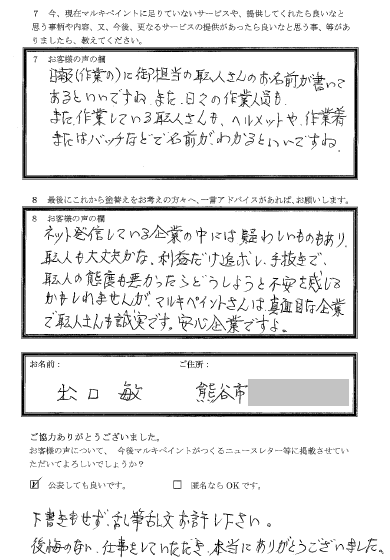 7 今、現在マルキペイントに足りていないサービスや、提供してくれたら良いなと
思う事柄や内容、又、今後、更なるサービスの提供があったら良いなと思う事、等があ
りましたら、教えてください。
7 お客様の声の欄
日報(作業の)に御担当の職人さんのお名前が書いて
あるといいですね。また、日々の作業人員も。
また作業している職人さんも、ヘルメットや、作業着
またはバッチなどで名前が、わかるといいですね。
8 最後にこれから塗替えをお考えの方々へ、一言アドバイスがあれば、お願いします。
8 お客様の声の欄
ネット発信している企業の中には疑わしいものもあり、
職人も大丈夫かな、利益だけ追求し、手抜きで、
職人の態度も悪かったらどうしようと不安を感じる
かもしれませんが、マルキペイントさんは、真面目な企業
で職人さんも誠実です。安心企業ですよ。
お名前:
ご住所:
出口 敏
熊谷市
ご協力ありがとうございました。
お客様の声について、今後マルキペイントがつくるニュースレター等に掲載させてい
ただいてよろしいでしょうか?
☑ 公表しても良いです。
□ 匿名ならOKです。
下書きもせず、乱筆乱文お許し下さい。
後悔のない、仕事をしていただき、本当にありがとうございました。